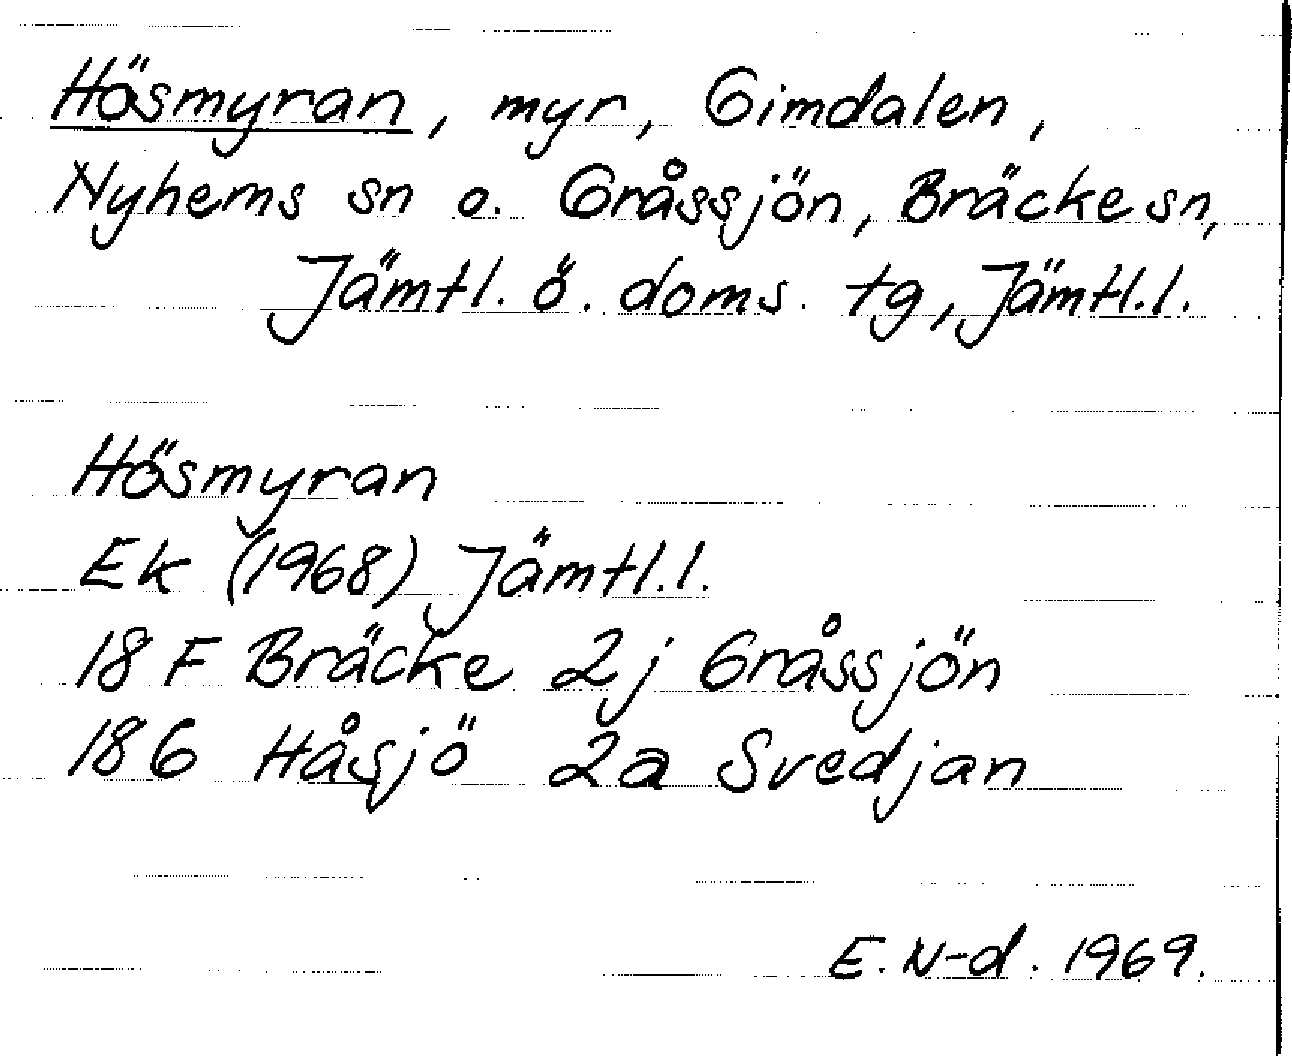 Hösmyran, myr, Gimdalen,
Nyhems sn o. Gråssjön, Bräcke sn,
Jämtl. ö. doms. tg, Jämtl. l.
Hösmyran
Ek (1968) Jämtl. l.
18 F Bräcke 2j Gråssjön
18G Håsjö 2a Svedjan
E. N-d. 1969.